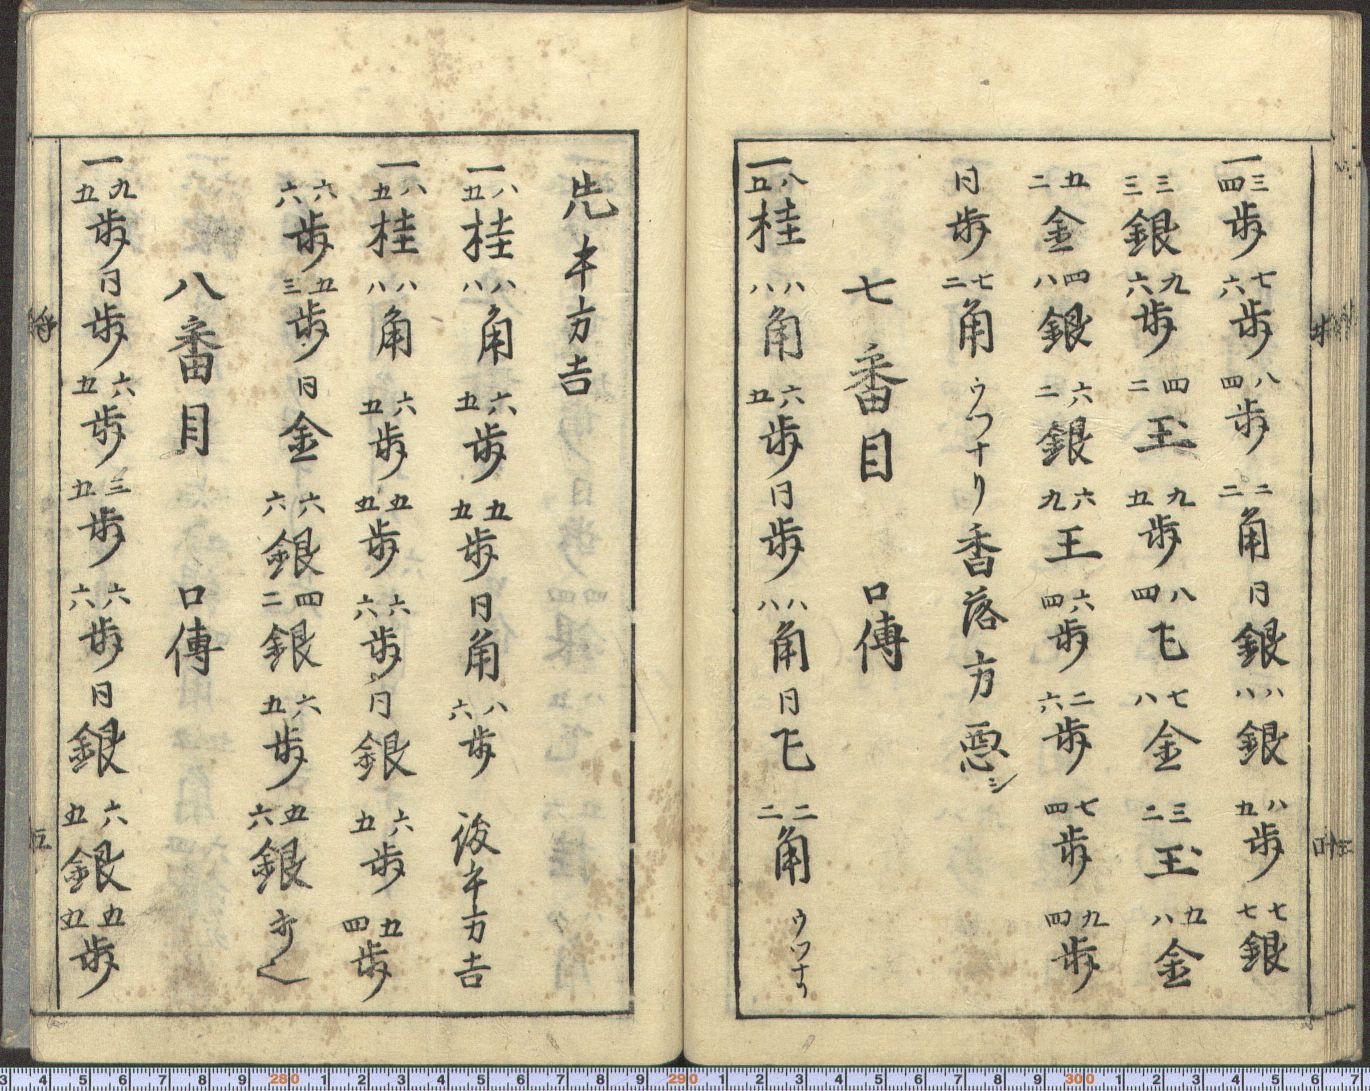 一三四歩七六歩八四歩二二角同銀八八銀八五歩七七銀
三三銀九六歩四二玉九五歩八四飛七八金三二玉五八金
五二金四八銀六二銀六九王六四歩二六歩七四歩九四歩
同歩七二角ウツナリ香落方悪シ
七番目 口傳
一八五桂八八角六五歩同歩八八角同飛二二角ウツナリ
先手方吉
一八五桂八八角六五歩五五歩同角八六歩後手方吉
一八五桂八八角六五歩五五歩六六歩同銀六五歩五四歩
六六歩五三歩同金六六銀四二銀六五歩五六銀
八番目 口傳
一九五歩同歩六五歩三五歩六六歩同銀六五銀五五歩
3 4 5 6 7 8 9 280 1 2 3 4 5 6 7 8 9 290 1 2 3 4 5 6 7 8 9 300 1 2 3 4 5 6 7